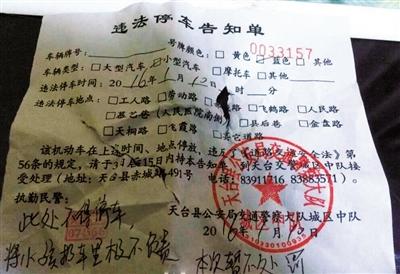 违法停车告知单
0033157
车辆牌号: 号牌颜色:□黄色 蓝色 □其他
车辆类型:□大型汽车 小型汽车 □摩托车 □其他
违法停车时间:2016年1月12日 时 分
违法停车地点:□工人路 □劳动路 飞鹤路 □人民路
□县后巷 □金盘路
□天桐路 □飞霞路 □其它道路
该机动车在上述时间、地点停放,违反《道路交通安全法》第
56条的规定,请于3日后15日内持本告知单,到天台交警城区中队接
受处理(地址:天台县赤城路491号 电话:83911716 83883571)。
执勤民警:
此处不得停车,
天台县公安局交通警察大队城区中队
将小孩扔车里极不负责
本次暂不处罚